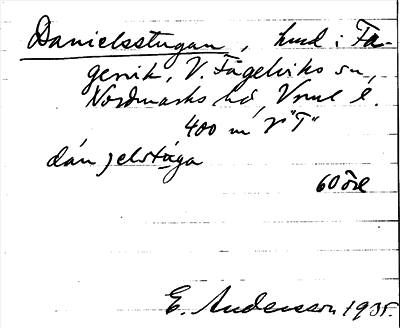 Danielsstugan, hmd i Få-
gevik, V. Fågelviks sn,
Nordmarks hd, Vrml l.
400 m
dán jelstùga
60 öre
E. Andersson 193